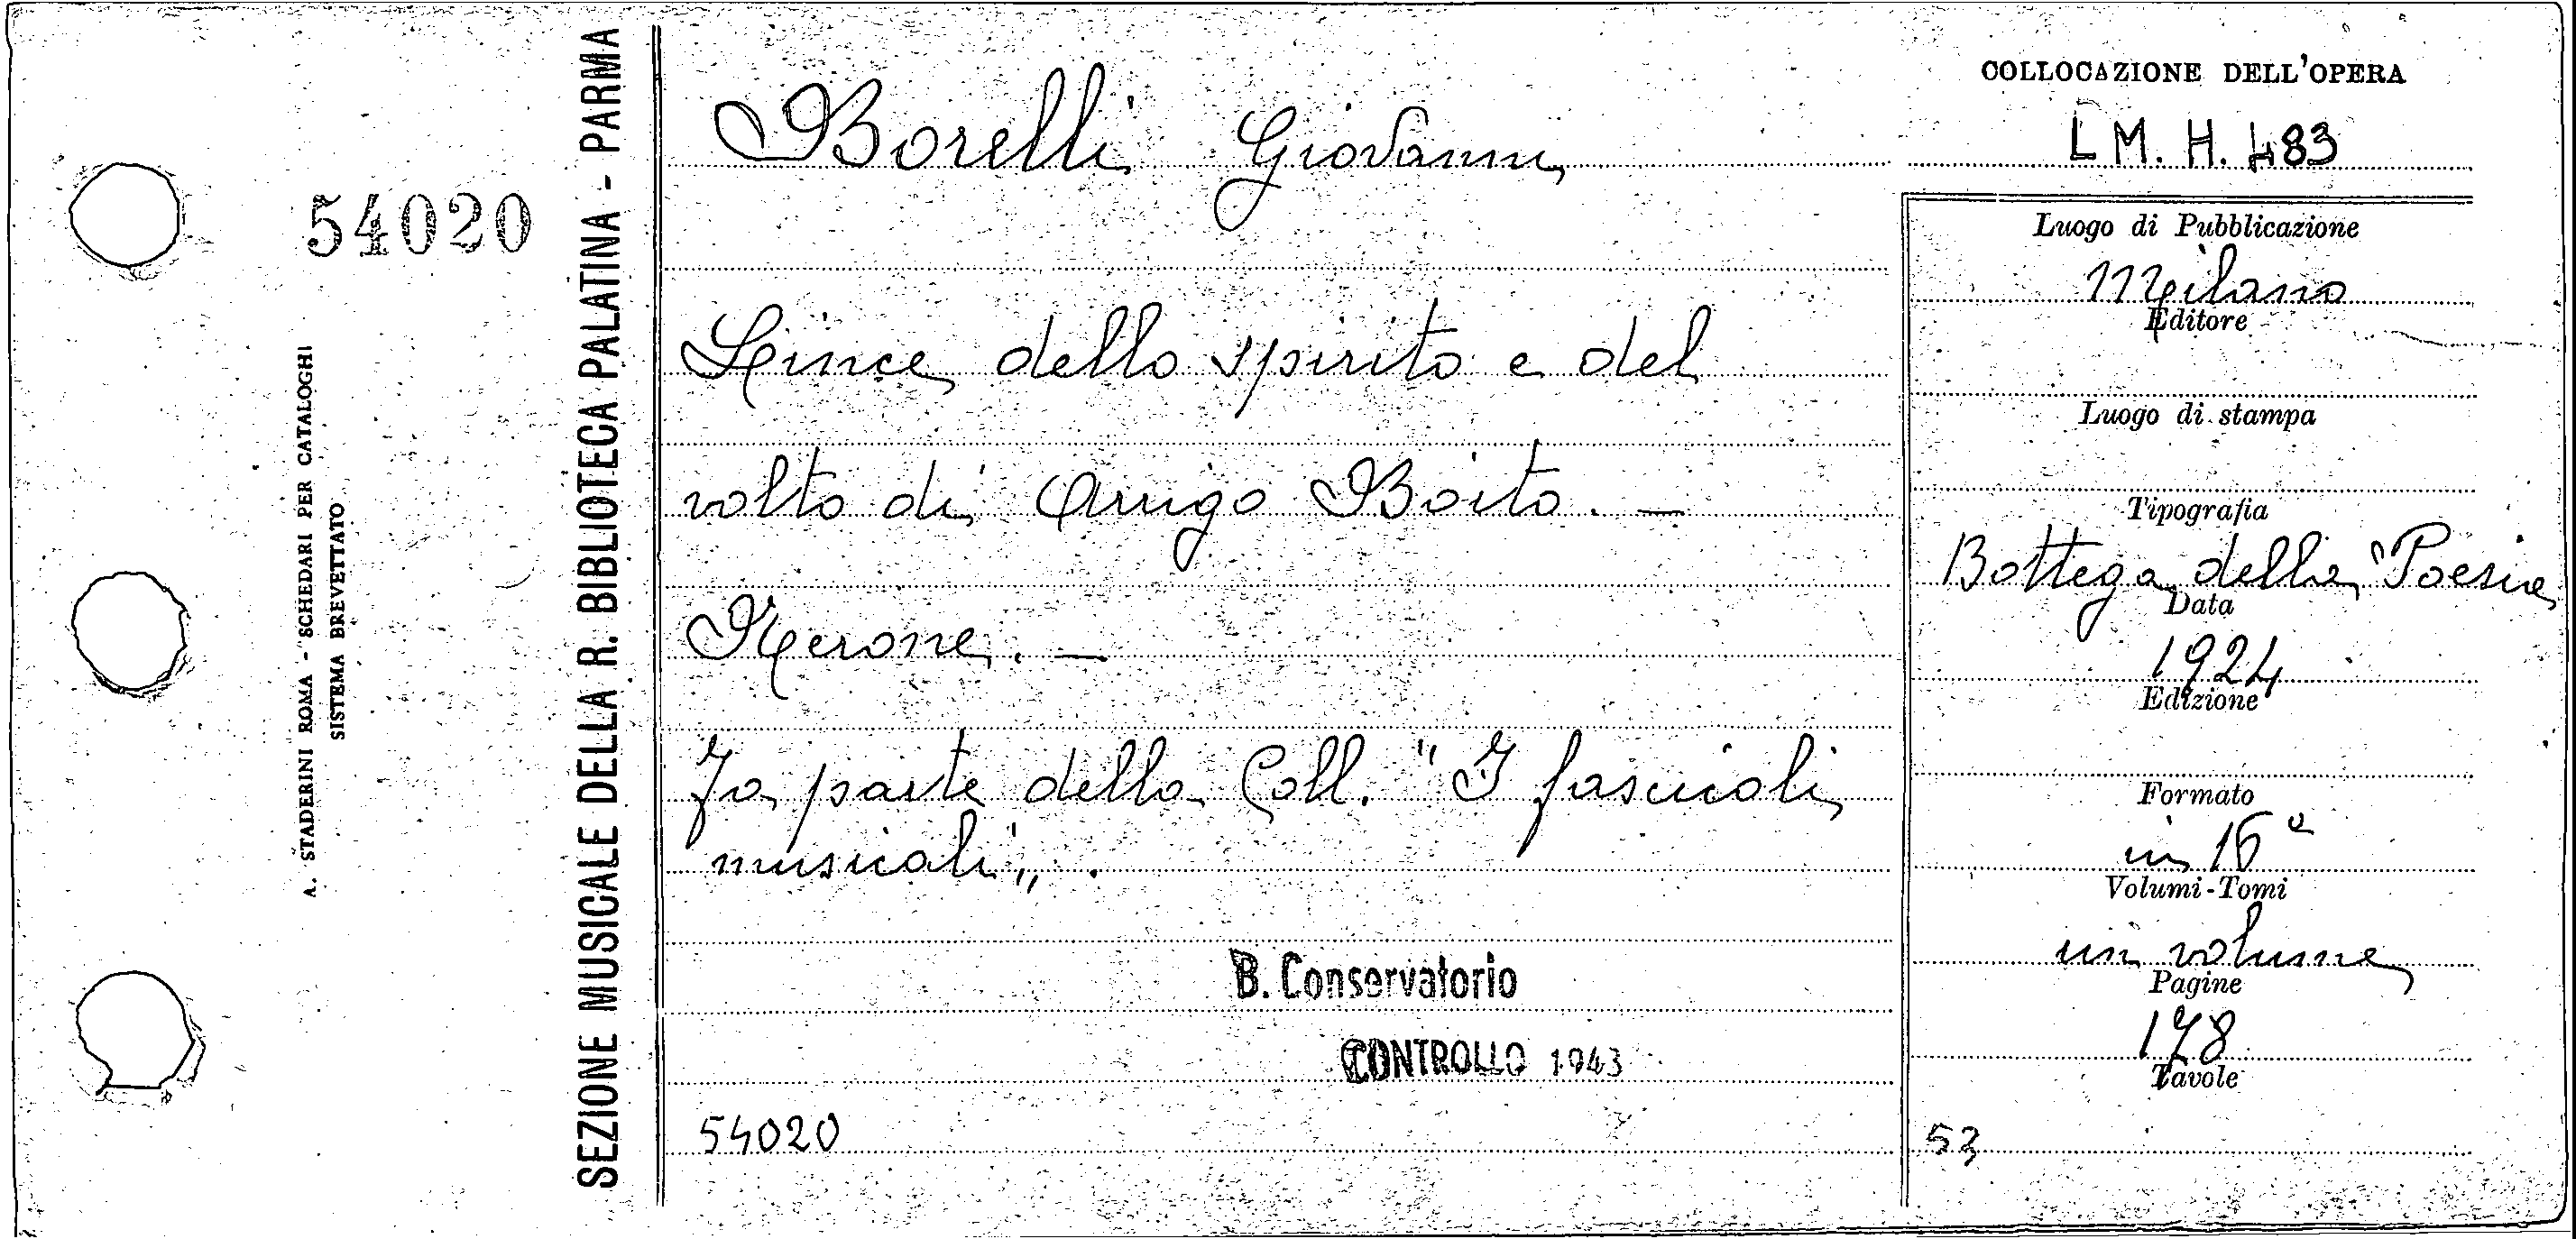 54020
A. STADERINI ROMA - SCHEDARI PER CATALOGHI
SISTEMA BREVETTATO
SEZIONE MUSICALE DELLA R. BIBLIOTECA PALATINA - PARMA
Borelli Giovanni
Linee dello spirito e del
volto di Arrigo Boito. —
Nerone. —
Fa parte della Coll. "I fascicoli
musicali„.
B. Conservatorio
CONTROLLO 1943
54020
COLLOCAZIONE DELL'OPERA
L M. H. 483
Luogo di Pubblicazione
Milano
Editore
Luogo di stampa
Tipografia
Bottega della Poesia
Data
1924
Edizione
Formato
in 16°
Volumi-Tomi
un volume
Pagine
178
Tavole
53